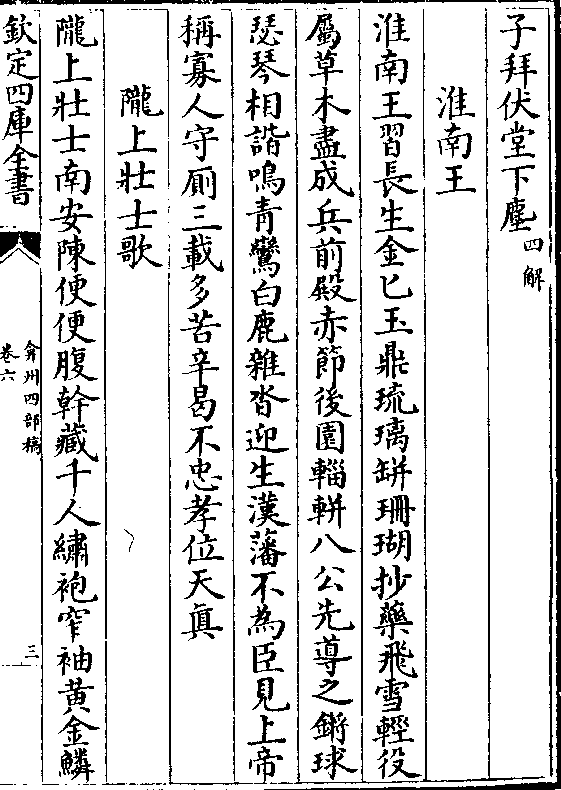 子拜伏堂下塵四解
淮南王
淮南王習長生金匕玉鼎琉璃缾珊瑚抄藥飛雪輕役
屬草木盡成兵前殿赤節後園輜軿八公先導之鏘球
瑟琴相諧鳴青鸞白鹿雜沓迎生漢藩不為臣見上帝
稱寡人守厠三載多苦辛曷不忠孝位天真
隴上壯士歌
隴上壯士南安陳便便腹幹藏千人繡袍窄袖黃金鱗
欽定四庫全書
弇州四部稿
卷六
三